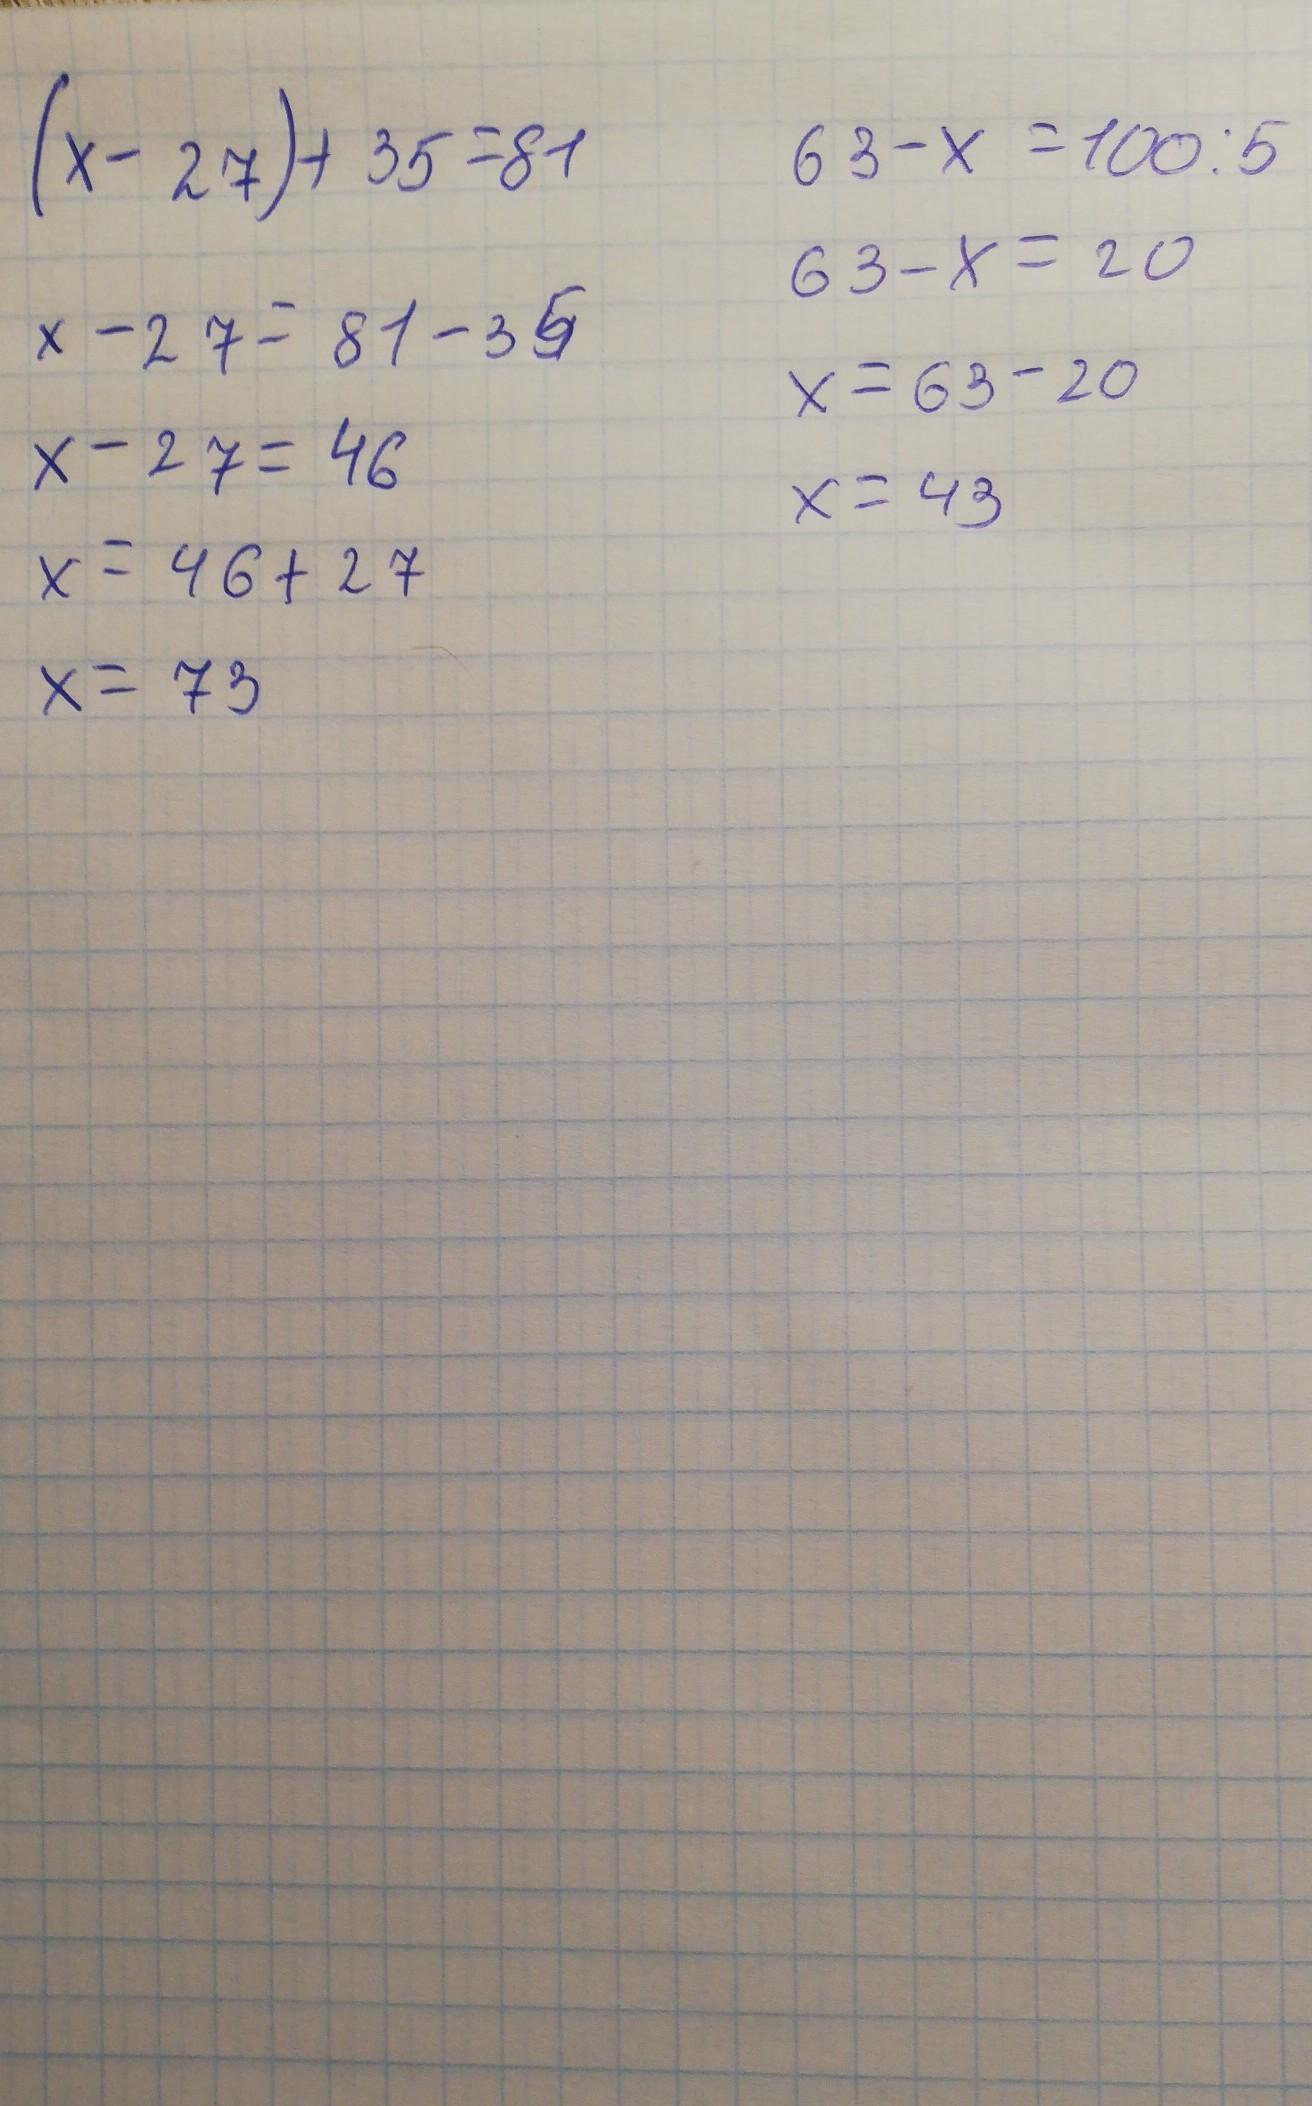 (x - 27) + 35 = 81
x - 27 = 81 - 35
x - 27 = 46
x = 46 + 27
x = 73
63 - x = 100 : 5
63 - x = 20
x = 63 - 20
x = 43